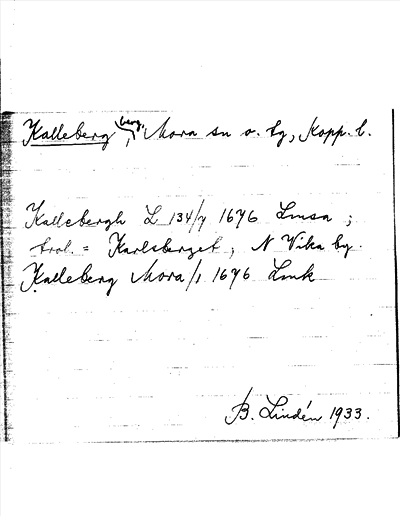 Kalleberg, berg, Mora sn o. tg, Kopp. l.
Kallebergh L 134/7 1696 Lmsa ;
trol. = Karlsberget, N Vika by.
Kalleberg Mora/1 1696 Lmk
B. Lindén 1933.